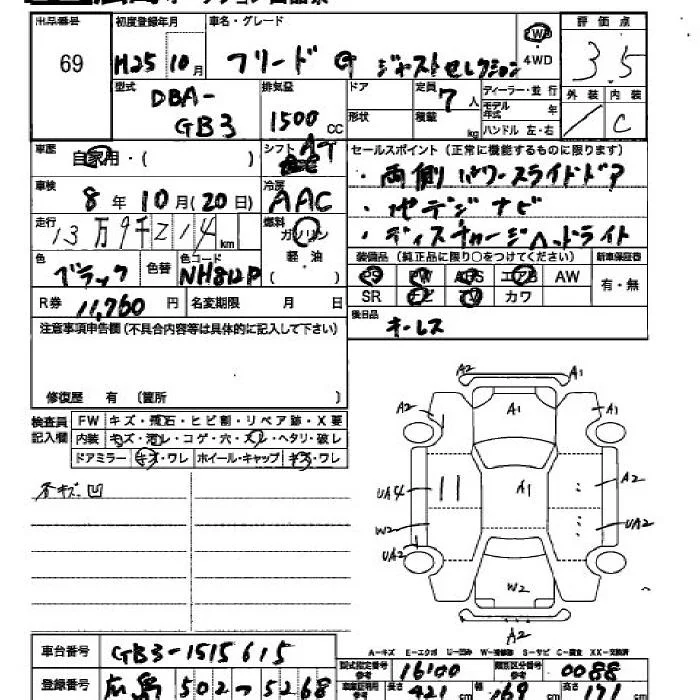 出品番号 初度登録年月 車名・グレード 評価点
69 H25年 10月 フリード G ジャストセレクション 4WD 3.5
型式 排気量 ドア 定員 ディーラー・並行 外装 内装
DBA-GB3 1500cc 7人 モデル年式 年 / C
形状 積載 kg ハンドル 左・右
車歴 自家用・( ) シフト AT セールスポイント(正常に機能するものに限ります)
車検 8年 10月(20日) 冷房 AAC ・両側パワースライドドア
・地デジナビ
走行 13万9千214km 燃料 ガソリン ・ディスチャージヘッドライト
軽・油 ( )
色 ブラック 色替 色コード NH812P
装備品(純正品に限り○をつけてください) 新車保証書
PS PW ABS エアB AW 有・無
SR ナビ TV カワ
R券 11,760円 名変期限 月 日
後日品 キーレス
注意事項申告欄(不具合内容等は具体的に記入して下さい)
修復歴 有 〔箇所 〕
検査員記入欄 FW キズ・飛石・ヒビ割・リペア跡・X要
内装 キズ・汚レ・コゲ・穴・スレ・ヘタリ・破レ
ドアミラー キズ・ワレ ホイール・キャップ キズ・ワレ
各キズ、凹
A2 A1
A2 A1 A2
UA4 A1 A2
W2 UA2
UA2
W2
A2
A-キズ E-エクボ U-凹み W-補修跡 S-サビ C-腐食 XX-交換済
車台番号 GB3-1515615
型式指定番号 参考 16100 類別区分番号 参考 0088
登録番号 広島 502 5268
車庫証明用 参考 長さ 421cm 幅 169cm 高さ 171